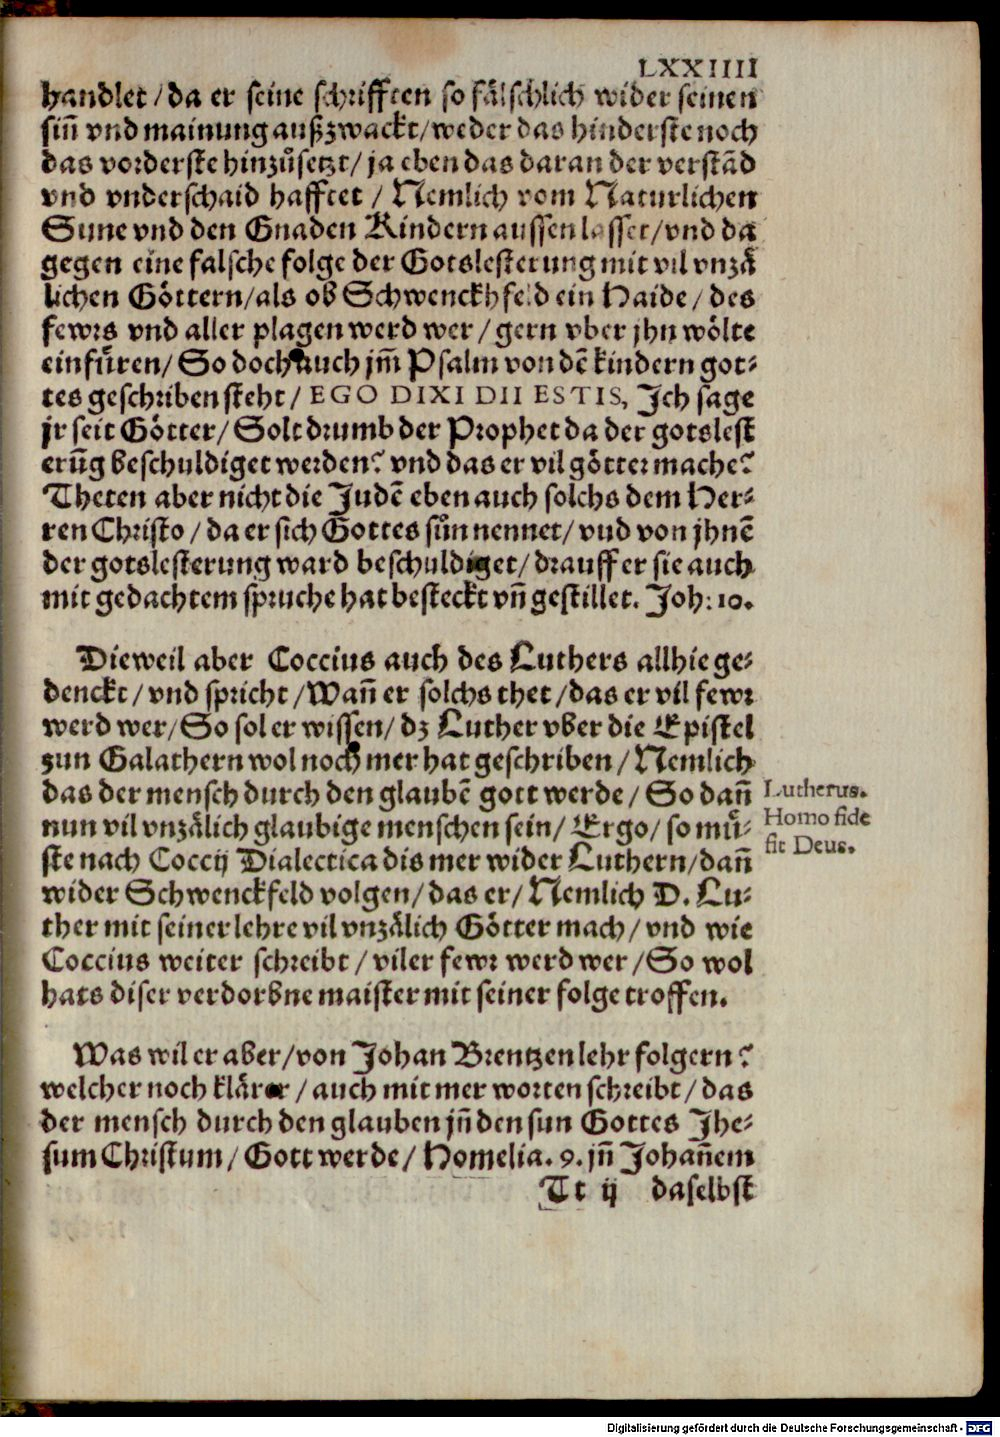 LXXIIII
handlet/da er seine schrifften so fälschlich wider seinen
siñ vnd mainung außzwackt/weder das hinderste noch
das vorderste hinzůsetzt/ja eben das daran der verstãd
vnd vnderschaid hafftet/Nemlich vom Naturlichen
Sune vnd den Gnaden Kindern aussen lasset/vnd da
gegen eine falsche folge der Gotslesterung mit vil vnzä
lichen Göttern/als ob Schwenckhfeld ein Haide/des
fewrs vnd aller plagen werd wer/gern vber jhn wölte
einfüren/So doch auch jm̃ Psalm von dẽ kindern got-
tes geschriben steht/EGO DIXI DII ESTIS, Jch sage
jr seit Götter/Solt drumb der Prophet da der gotslest
erũg beschuldiget werden? vnd das er vil götter mache?
Theten aber nicht die Judẽ eben auch solchs dem Her-
ren Christo/da er sich Gottes sůn nennet/vnd von jhnẽ
der gotslesterung ward beschuldiget/drauff er sie auch
mit gedachtem spruche hat besteckt vñ gestillet. Joh: 10.
Dieweil aber Coccius auch des Luthers allhie ge-
denckt/vnd spricht/Wañ er solchs thet/das er vil fewr
werd wer/So sol er wissen/dz Luther vber die Epistel
zun Galathern wol noch mer hat geschriben/Nemlich
das der mensch durch den glaubẽ gott werde/So dañ
nun vil vnzälich glaubige menschen sein/Ergo/so mü-
ste nach Coccij Dialectica dis mer wider Luthern/dañ
wider Schwenckfeld volgen/das er/Nemlich D. Lu-
ther mit seiner lehre vil vnzälich Götter mach/vnd wie
Coccius weiter schreibt/viler fewr werd wer/So wol
hats diser verdorbne maister mit seiner folge troffen.
Lutherus.
Homo fide
fit Deus.
Was wil er aber/von Johan Brentzen lehr folgern?
welcher noch klärer/auch mit mer worten schreibt/das
der mensch durch den glauben jñ den sun Gottes Jhe-
sum Christum/Gott werde/Homelia. 9. jñ Johañem
Tt ij daselbst
Digitalisierung gefördert durch die Deutsche Forschungsgemeinschaft - DFG